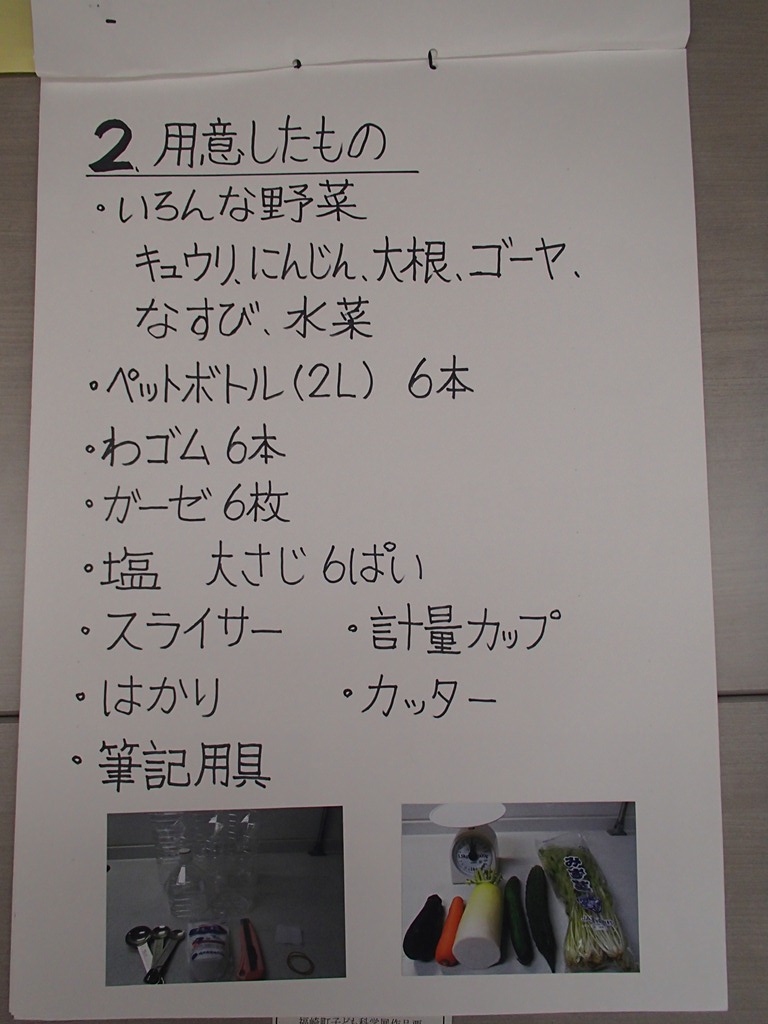 2. 用意したもの
・いろんな野菜
キュウリ、にんじん、大根、ゴーヤ、
なすび、水菜
・ペットボトル(2L) 6本
・わゴム 6本
・ガーゼ 6枚
・塩 大さじ 6ぱい
・スライサー ・計量カップ
・はかり ・カッター
・筆記用具
みず菜